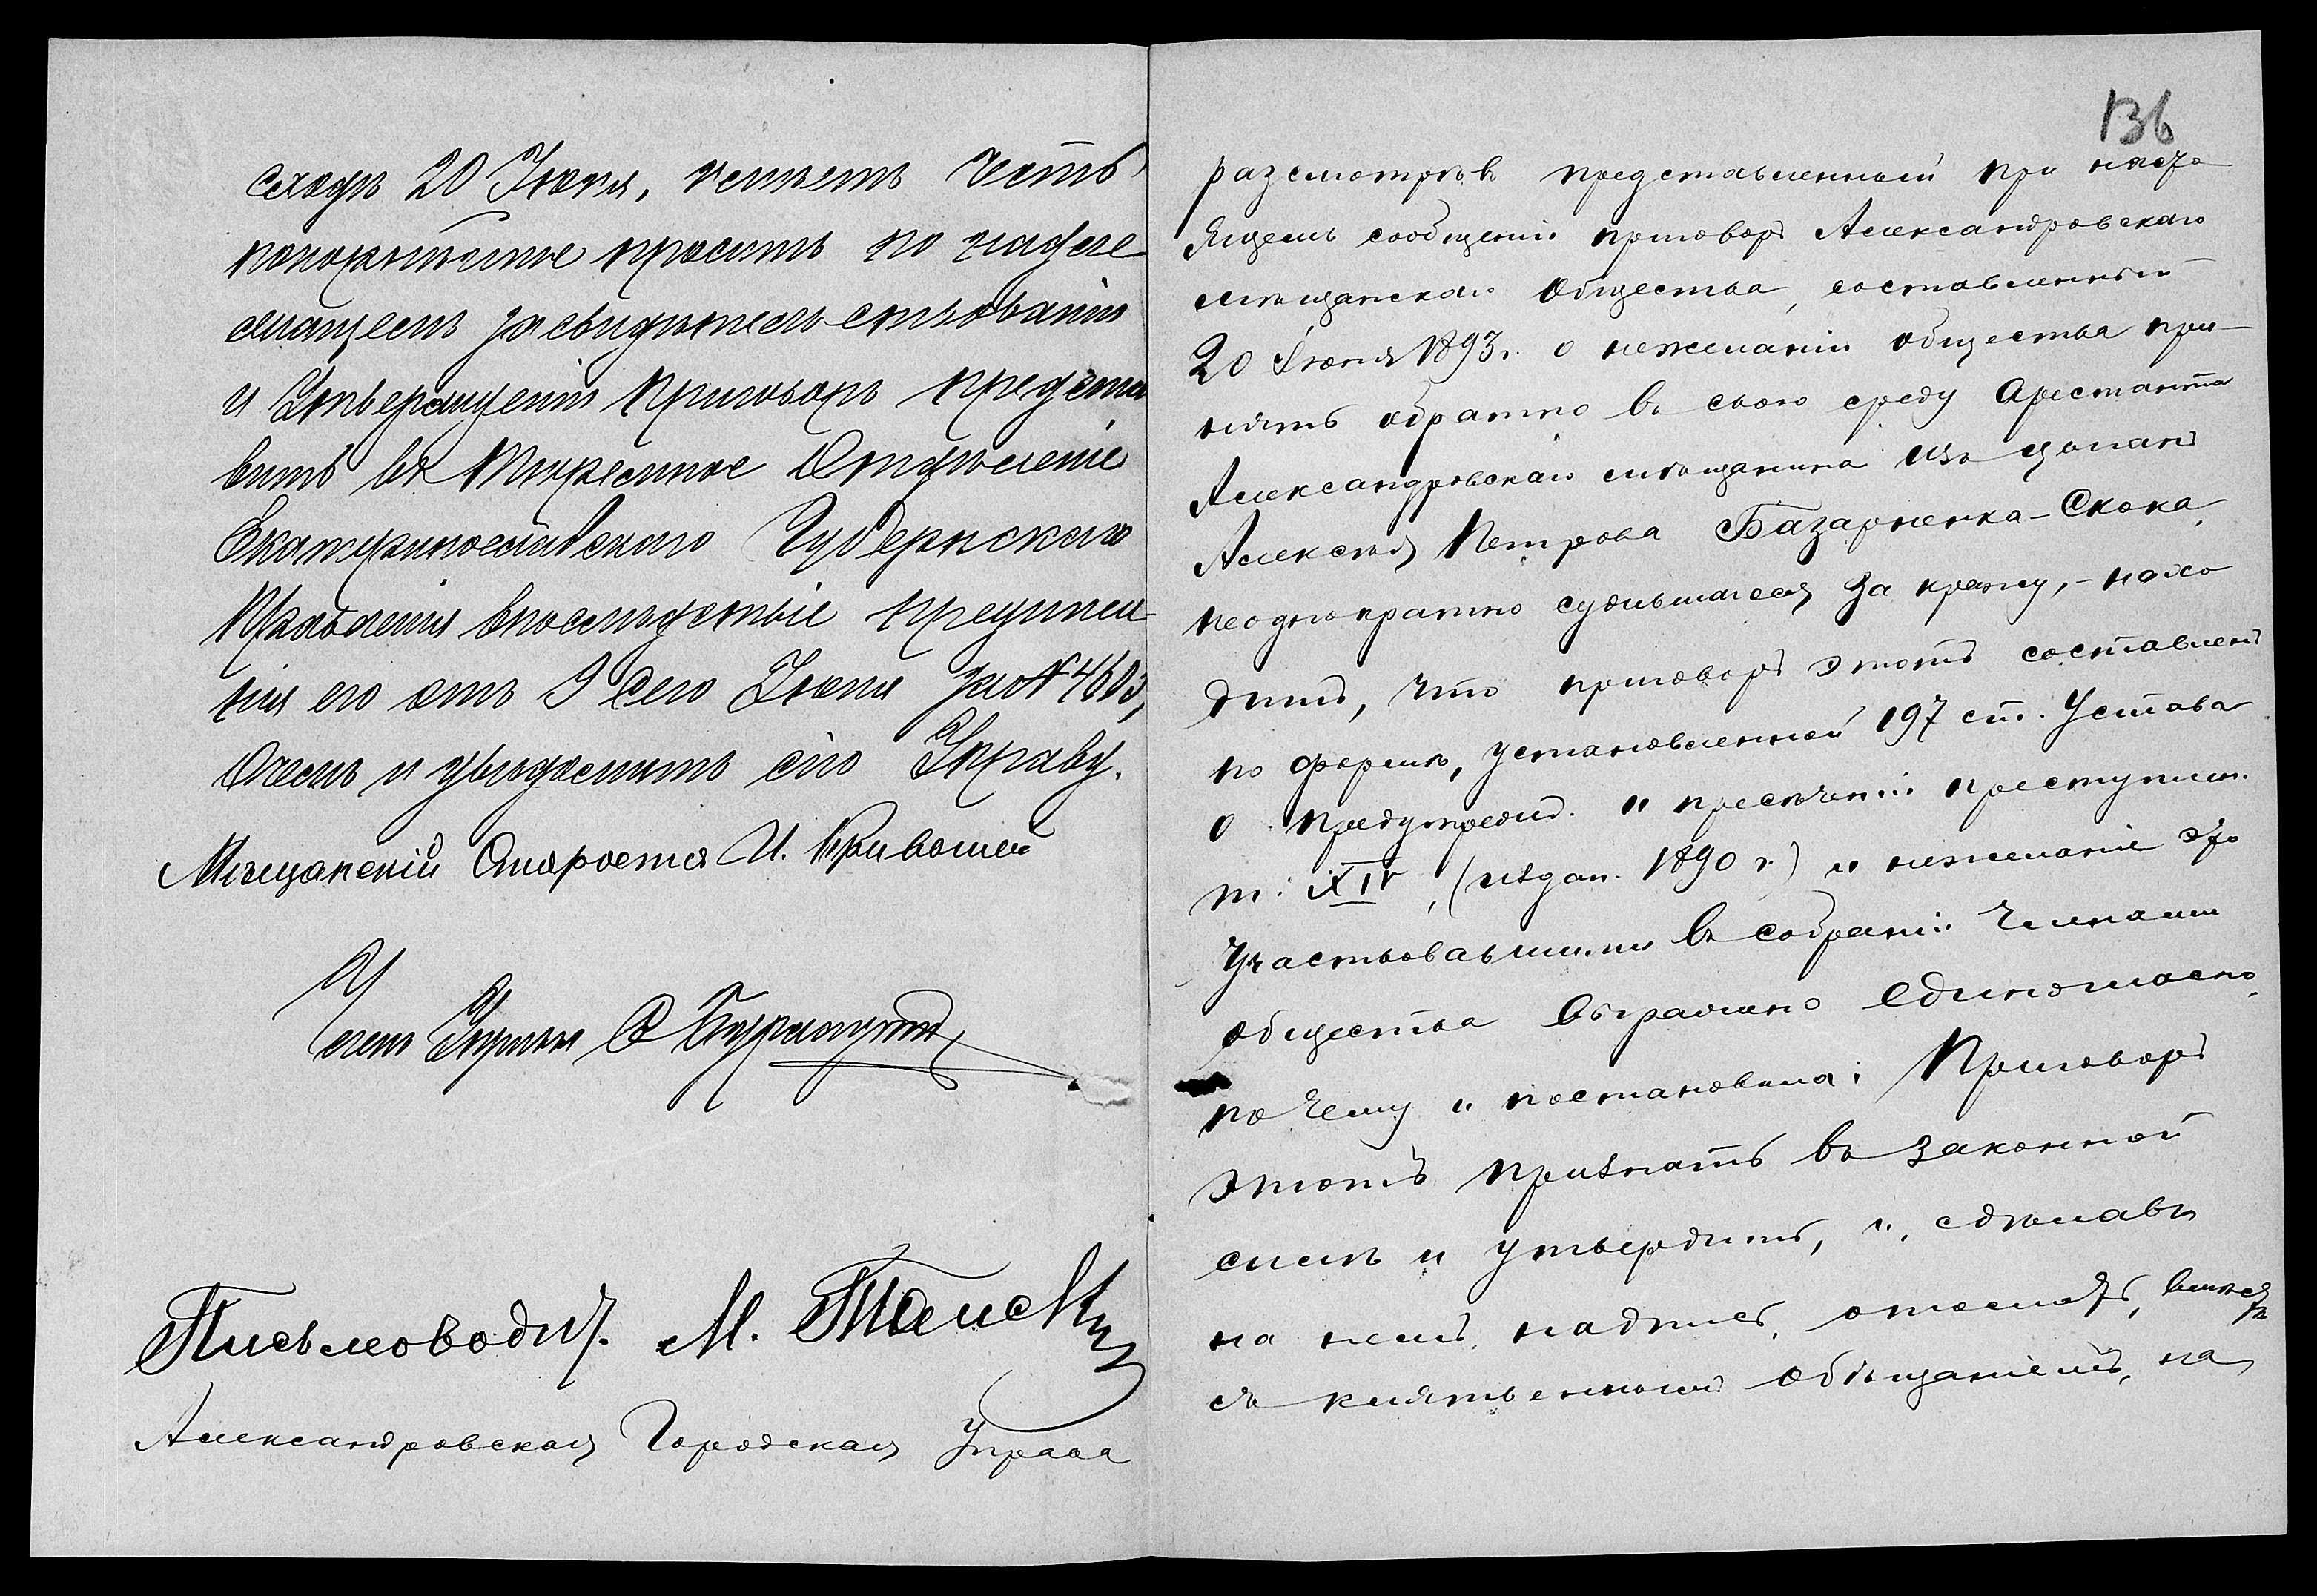 сходѣ 20 Июня, имѣетъ честь
покорнѣйше просить по надле
жащемъ засвидѣтельствованіи
и Утвержденіи приговоръ предста
вить въ Тюремное Отдѣленіе
Екатеринославскаго Губернскаго
Правленія впослѣдствіе предписа-
нія его отъ 9 сего Июня за № 4603,
О чемъ и увѣдомить сію Управу.
Мѣщанскій Староста И. Кривошей
Членъ Управы
Письмоводит.  М.
Александровская Городская Управа
136
разсмотрѣвъ представленный при насто
ящемъ сообщеніи приговоръ Александровскаго
мѣщанскаго общества, составленный
20 Іюня 1893 г. о нежеланіи общества при-
нять обратно въ свою среду арестанта
Александровскаго мѣщанина изъ цыганъ
Алексѣя Петрова Базарненка-Скока,
неоднократно судившагося за кражу, - нахо
дитъ, что приговоръ этотъ составленъ
по формѣ, установленной 197 ст. Устава
о предупрежд. и пресѣченіи преступлен.
т. XIV, (издан. 1890 г.) и нежеланіе это
участвовавшими въ собраніи членами
общества выражено единогласно,
по чему и постановила: Приговоръ
этотъ признать въ законной
силѣ и утвердить, и, сдѣлавъ
на немъ надпись, отослать, вмѣстѣ
съ клятвеннымъ обѣщаніемъ, на